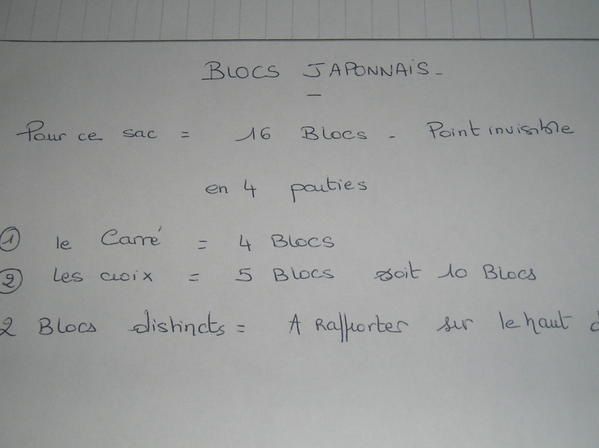 BLOCS JAPONNAIS -
Pour ce sac = 16 Blocs - Point invisible
en 4 parties
① le Carré = 4 BLOCS
② Les croix = 5 BLOCS soit 10 BLOCS
2 BLOCS distincts = A Rapporter sur le haut d